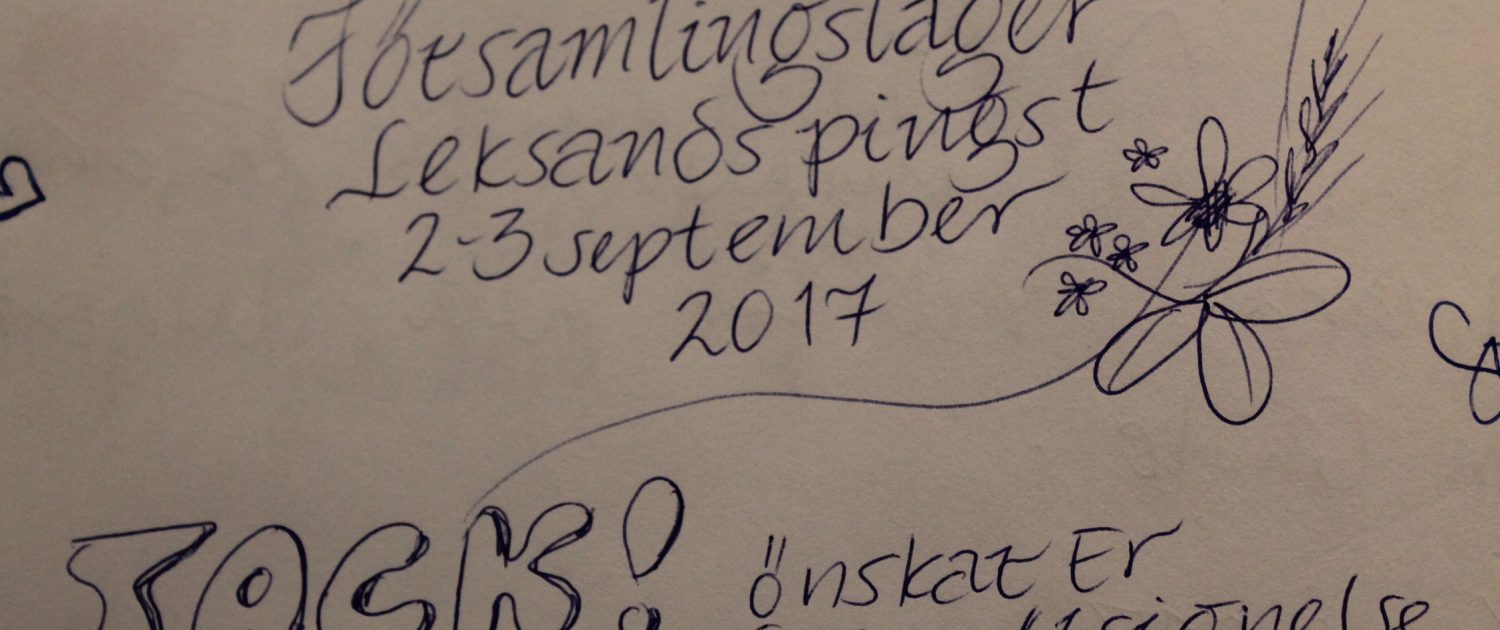 Församlingsläger
Leksands pingst
2-3 september
2017
TACK! önskar Er